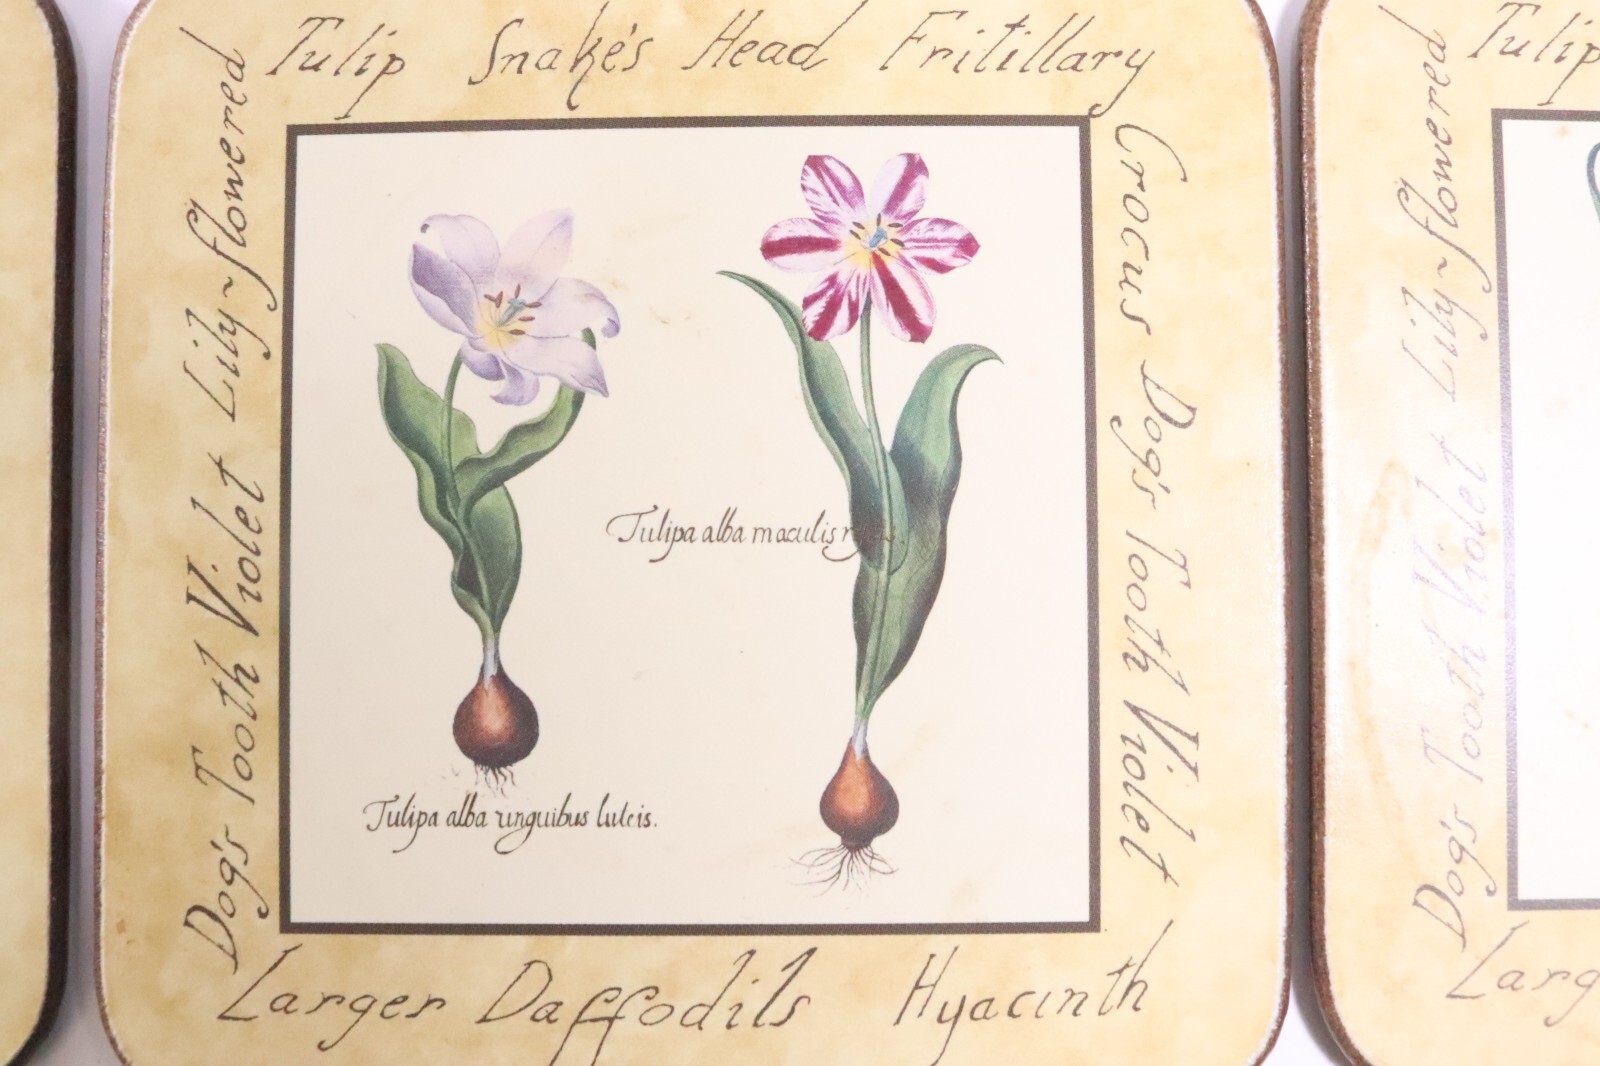 Tulip Snake's Head Fritillary
Crocus Dog's Tooth Violet
Larger Daffodils Hyacinth
Dog's Tooth Violet Lily-flowered
Tulipa alba maculis
Tulipa alba unguibus luteis.
Tulip
Dog's Tooth Violet Lily-flowered
Larg